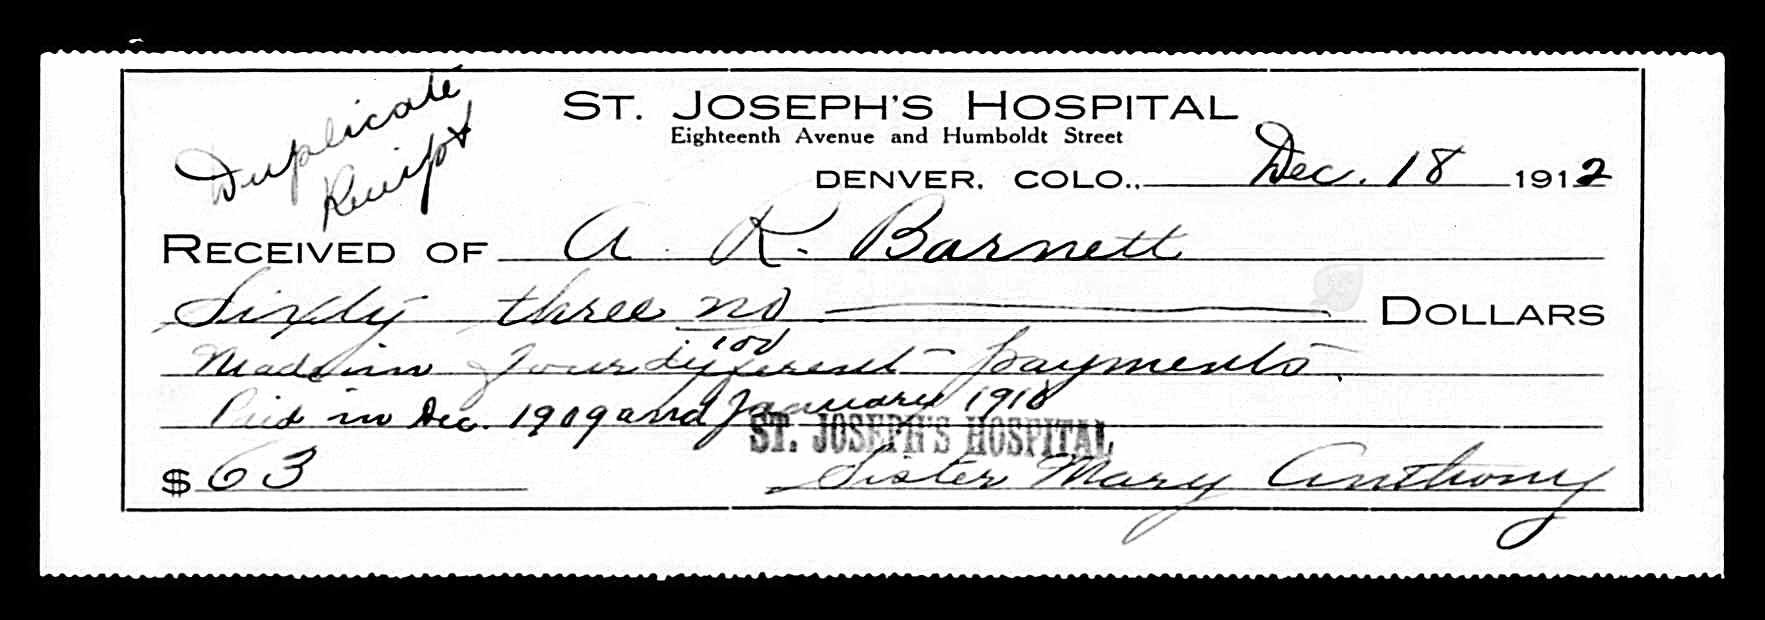 Duplicate
Receipt
ST. JOSEPH'S HOSPITAL
Eighteenth Avenue and Humboldt Street
DENVER, COLO., Dec. 18 1912
RECEIVED OF A. K. Barnett
Sixty three no/100 DOLLARS
Made in four different payments.
Paid in Dec. 1909 and January 1910
ST. JOSEPH'S HOSPITAL
$ 63 Sister Mary Anthony